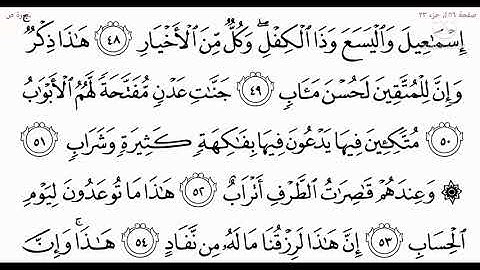 صفحة ٤٥٦، جزء ٢٣
إِسْمَٰعِيلَ وَٱلْيَسَعَ وَذَا ٱلْكِفْلِ ۖ وَكُلٌّ مِّنَ ٱلْأَخْيَارِ ﴿٤٨﴾ هَٰذَا ذِكْرٌ
وَإِنَّ لِلْمُتَّقِينَ لَحُسْنَ مَـَٔابٍ ﴿٤٩﴾ جَنَّٰتِ عَدْنٍ مُّفَتَّحَةً لَّهُمُ ٱلْأَبْوَٰبُ
﴿٥٠﴾ مُتَّكِـِٔينَ فِيهَا يَدْعُونَ فِيهَا بِفَٰكِهَةٍ كَثِيرَةٍ وَشَرَابٍ ﴿٥١﴾
۞ وَعِندَهُمْ قَٰصِرَٰتُ ٱلطَّرْفِ أَتْرَابٌ ﴿٥٢﴾ هَٰذَا مَا تُوعَدُونَ لِيَوْمِ
ٱلْحِسَابِ ﴿٥٣﴾ إِنَّ هَٰذَا لَرِزْقُنَا مَا لَهُۥ مِن نَّفَادٍ ﴿٥٤﴾ هَٰذَا ۚ وَإِنَّ